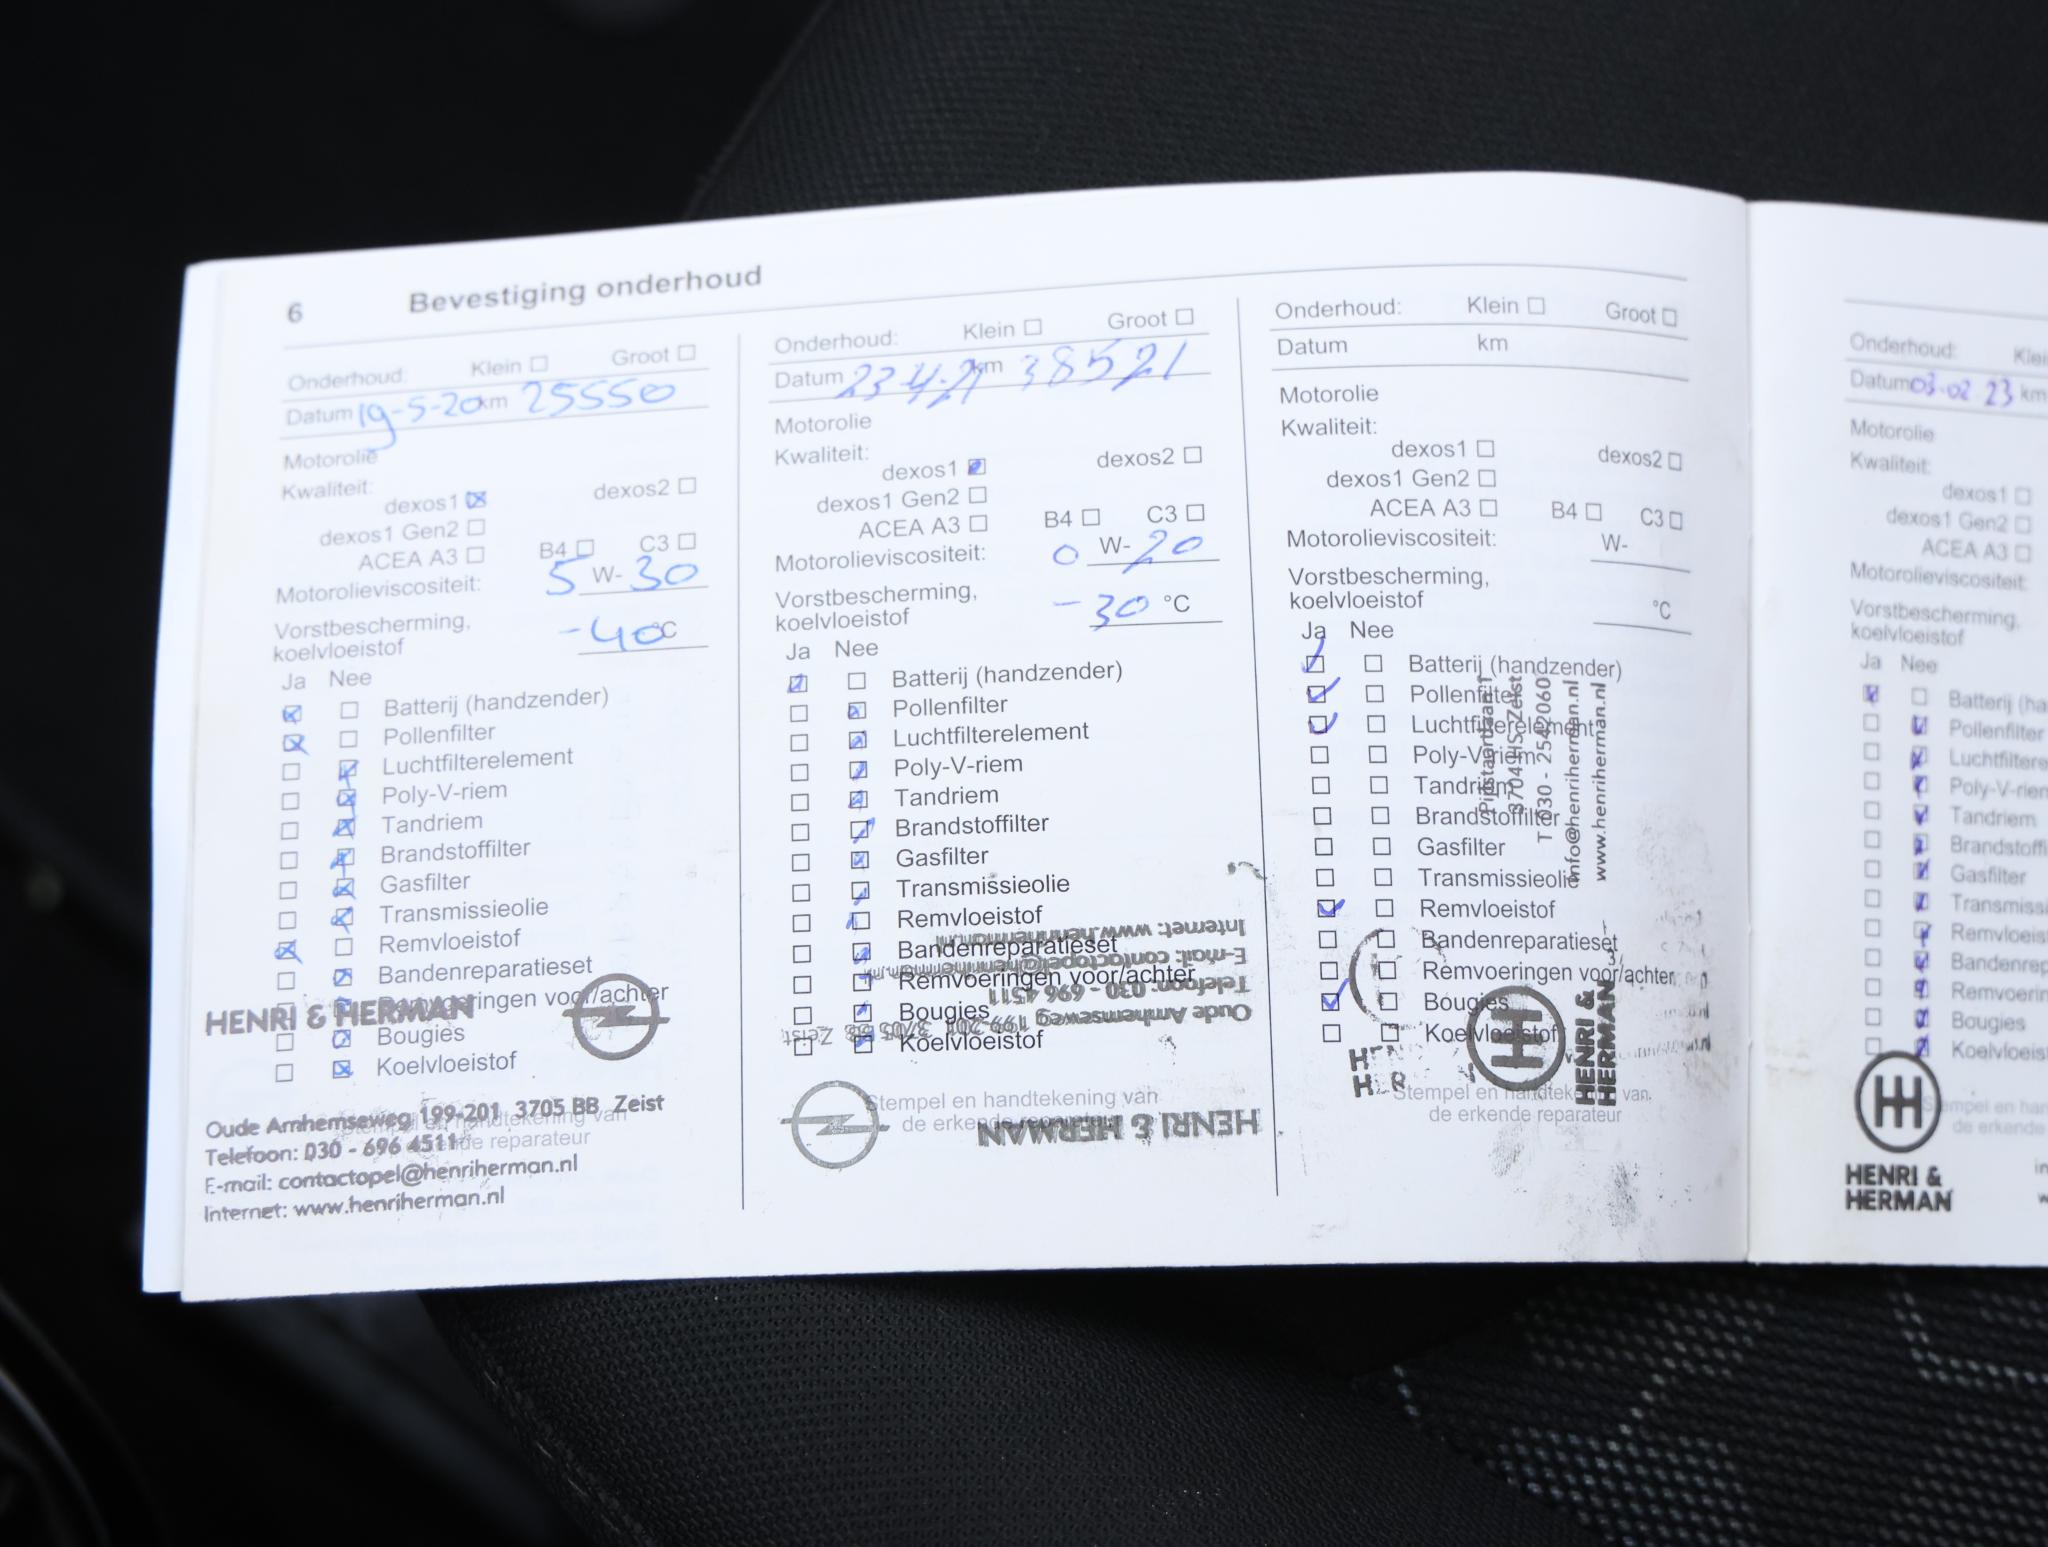 6 Bevestiging onderhoud
Onderhoud: Klein Groot
Datum 19-5-20 km 25550
Motorolie
Kwaliteit:
dexos1 dexos2
dexos1 Gen2
ACEA A3 B4 C3
Motorolieviscositeit: 5 W- 30
Vorstbescherming,
koelvloeistof -40 °C
Ja Nee
Batterij (handzender)
Pollenfilter
Luchtfilterelement
Poly-V-riem
Tandriem
Brandstoffilter
Gasfilter
Transmissieolie
Remvloeistof
Bandenreparatieset
Remvoeringen voor/achter
HENRI & HERMAN
Bougies
Koelvloeistof
Stempel en handtekening van
de erkende reparateur
Oude Arnhemseweg 199-201 3705 BB Zeist
Telefoon: 030 - 696 4511
E-mail: contactopel@henriherman.nl
Internet: www.henriherman.nl
Onderhoud: Klein Groot
Datum 23-4-21 km 38521
Motorolie
Kwaliteit:
dexos1 dexos2
dexos1 Gen2
ACEA A3 B4 C3
Motorolieviscositeit: 0 W- 20
Vorstbescherming,
koelvloeistof -30 °C
Ja Nee
Batterij (handzender)
Pollenfilter
Luchtfilterelement
Poly-V-riem
Tandriem
Brandstoffilter
Gasfilter
Transmissieolie
Remvloeistof
Bandenreparatieset
Remvoeringen voor/achter
Bougies
Koelvloeistof
Stempel en handtekening van
de erkende reparateur
HENRI & HERMAN
Oude Arnhemseweg 199-201 3705 BB Zeist
Telefoon: 030 - 696 4511
E-mail: contactopel@henriherman.nl
Internet: www.henriherman.nl
Onderhoud: Klein Groot
Datum km
Motorolie
Kwaliteit:
dexos1 dexos2
dexos1 Gen2
ACEA A3 B4 C3
Motorolieviscositeit: W-
Vorstbescherming,
koelvloeistof °C
Ja Nee
Batterij (handzender)
Pollenfilter
Luchtfilterelement
Poly-V-riem
Tandriem
Brandstoffilter
Gasfilter
Transmissieolie
Remvloeistof
Bandenreparatieset
Remvoeringen voor/achter
Bougies
Koelvloeistof
Stempel en handtekening van
de erkende reparateur
HENRI &
HERMAN
3704 HS Zeist
T 030 - 2542060
info@henriherman.nl
www.henriherman.nl
Onderhoud: Klei
Datum 03-02 23 km
Motorolie
Kwaliteit:
dexos1
dexos1 Gen2
ACEA A3
Motorolieviscositeit:
Vorstbescherming,
koelvloeistof
Ja Nee
Batterij (ha
Pollenfilter
Luchtfiltere
Poly-V-rien
Tandriem
Brandstoffi
Gasfilter
Transmiss
Remvloeist
Bandenrep
Remvoerin
Bougies
Koelvloeist
Stempel en han
de erkende
HENRI &
HERMAN